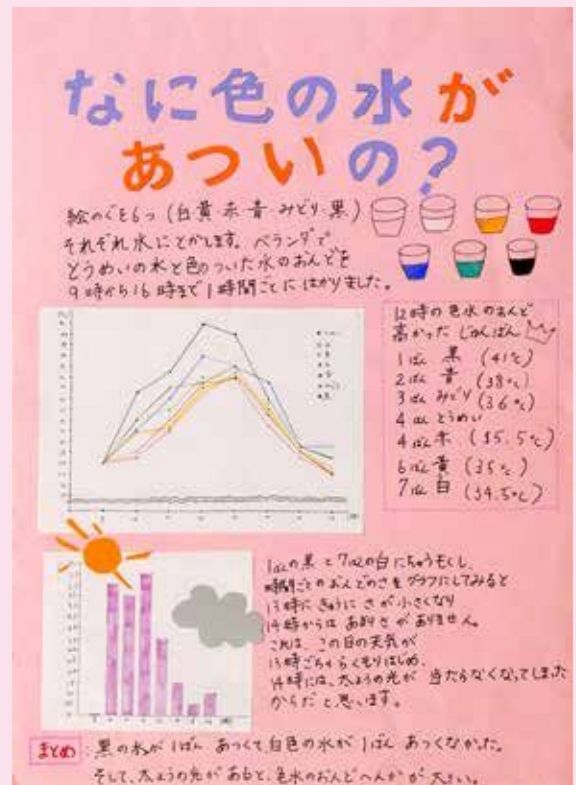 なに色の水が
あついの?
絵のぐを6つ(白黄赤青みどり黒)
それぞれ水にとかします。ベランダで
とうめいの水と色のついた水のおんどを
9時から16時まで1時間ごとにはかりました。
12時の色水のおんど
高かったじゅんばん
1ばん 黒 (41℃)
2ばん 青 (38℃)
3ばん みどり (36℃)
4ばん とうめい
4ばん 赤 (35.5℃)
6ばん 黄 (35℃)
7ばん 白 (34.5℃)
1ばんの黒と7ばんの白にちゅうもくし、
時間ごとのおんどのさをグラフにしてみると
13時にきゅうにさが小さくなり
14時からはあまりさがありません。
これは、この日の天気が
13時ごろからくもりはじめ、
14時には、太ようの光が 当たらなくなってしまった
からだと思います。
まとめ:黒の水が1ばん あつくて白色の水が1ばん あつくなかった。
そして、太ようの光があると、色水のおんどへんかが大きい。